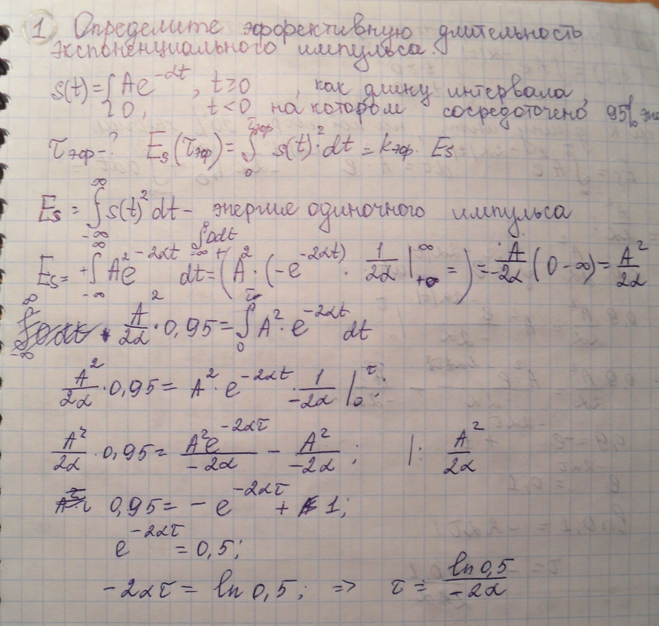 1 Определите эффективную длительность
экспоненциального импульса.
s(t) = { Ae^{-αt}, t ≥ 0 , как длину интервала,
0, t < 0 на котором сосредоточено 95% эне
τэф - ? Es(τэф) = ∫_0^{τэф} s(t)² dt = kэф · Es
Es = ∫_{-∞}^{∞} s(t)² dt - энергия одиночного импульса
Es = ∫_{-∞}^{∞} A²e^{-2αt} dt = (A² · (-e^{-2αt}) · 1/2α |_{+0}^{∞} = ) = A/-2α (0 - ∞) = A²/2α
A²/2α · 0,95 = ∫_0^τ A² · e^{-2αt} dt
A²/2α · 0,95 = A² · e^{-2αt} · 1/-2α |_0^τ ;
A²/2α · 0,95 = A²e^{-2ατ}/-2α - A²/-2α ; |: A²/2α
0,95 = - e^{-2ατ} + 1;
e^{-2ατ} = 0,5;
-2ατ = ln 0,5; => τ = ln 0,5/-2α